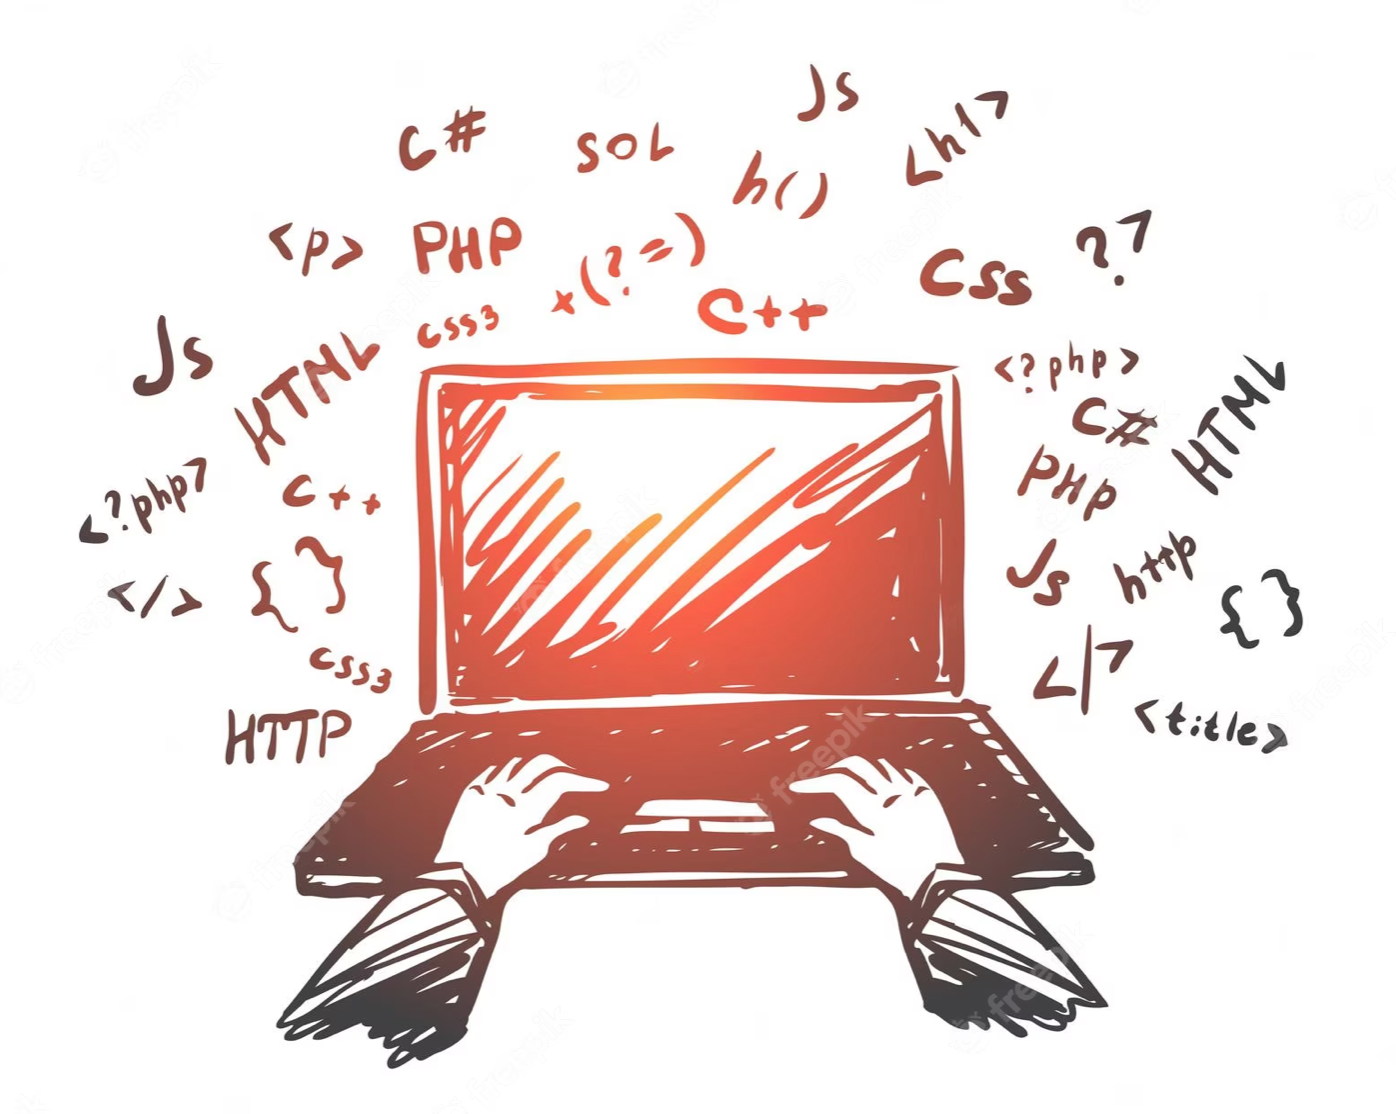 Js
C#
SOL
<h1>
h()
<p>
PHP
+(?=)
Css
??
css3
C++
Js
HTML
<?php>
C#
HTML
<?php>
C++
PHP
</>
{ }
Js
http
{ }
css3
<|>
HTTP
<title>
freepik